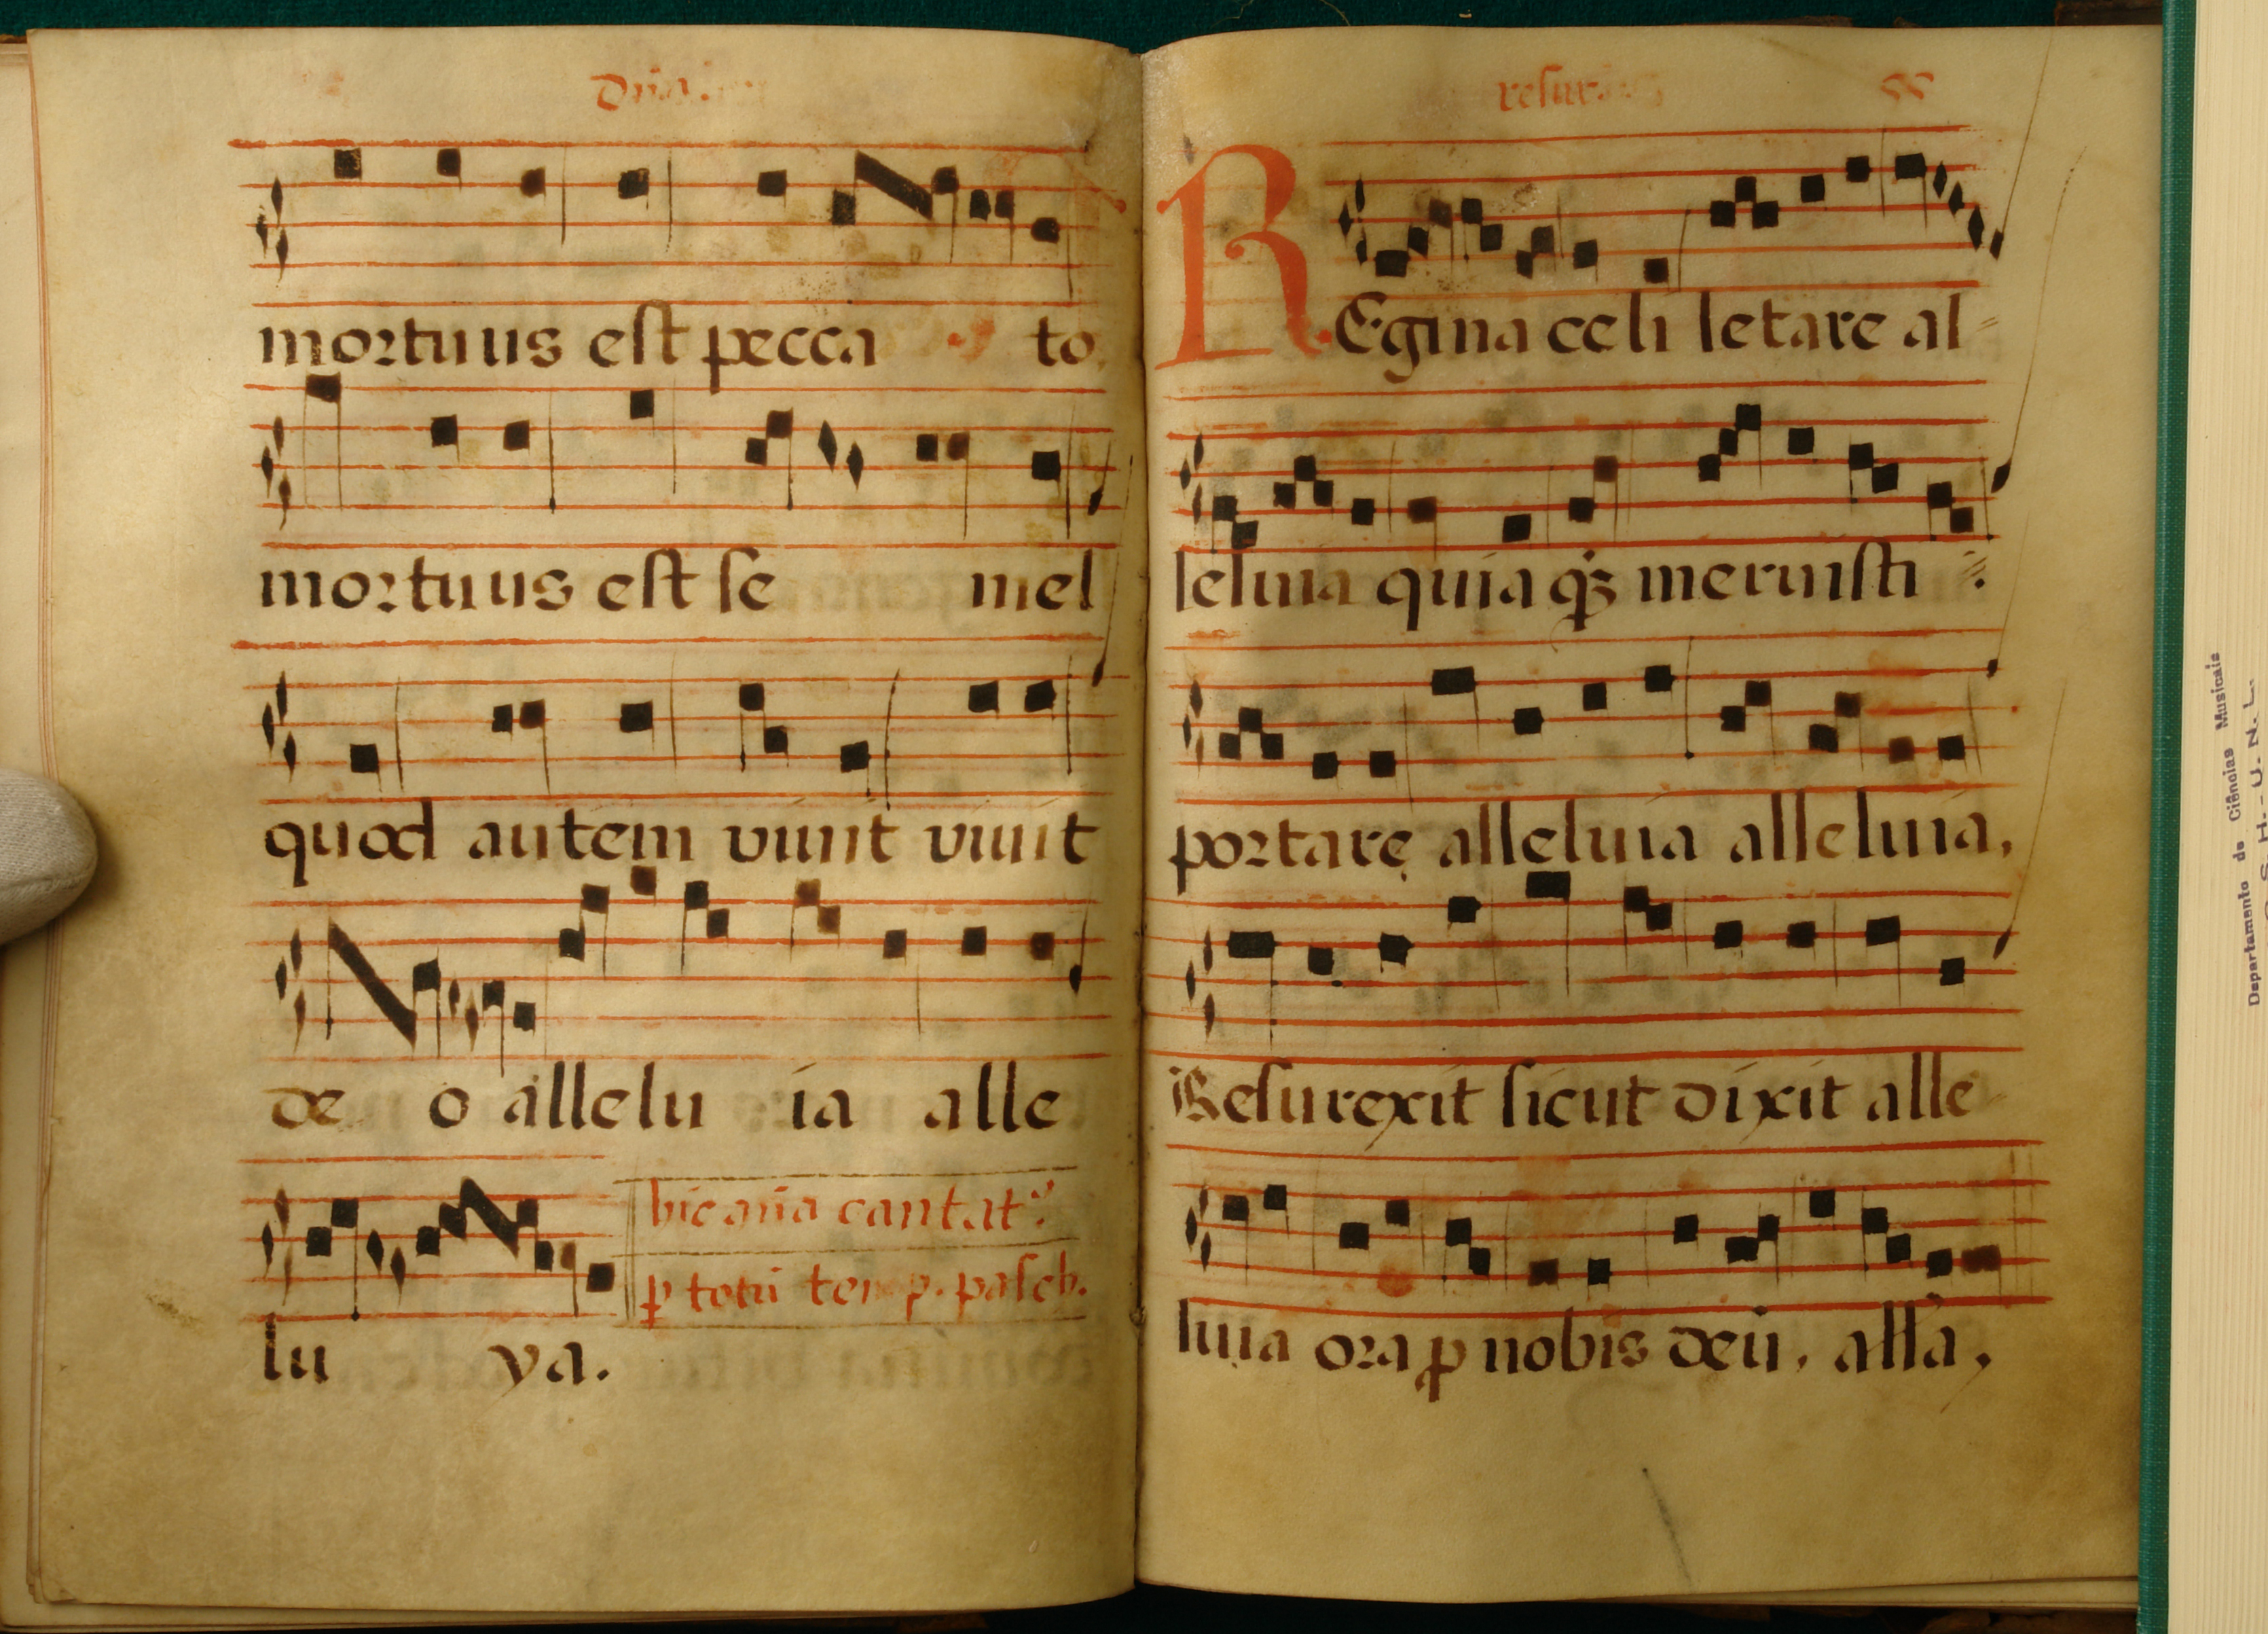 Dñica
mortuus est pecca to
mortuus est se mel
quod autem viuit viuit
de o allelu ia alle
lu ya.
hic aña cantat᷒
ꝑ totũ temp. pasch.
resur
REgina celi letare al
leluia quia q̃ʒ meruisti
portare alleluia alleluia,
Resurexit sicut dixit alle
luia ora ꝓ nobis deũ, alľa,
Departamento de Ciências Musicais
F. C. S. H. - U. N. L.